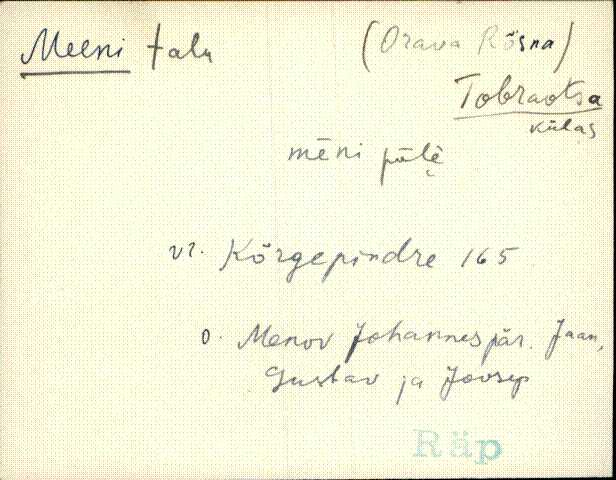 Meeni talu (Orava Rõsna)
Tobraotsa
külas
mēni pǟlē
vr. Kõrgepindre 165
o. Menov Johannes pär. Jaan,
Gustav ja Joosep
Räp